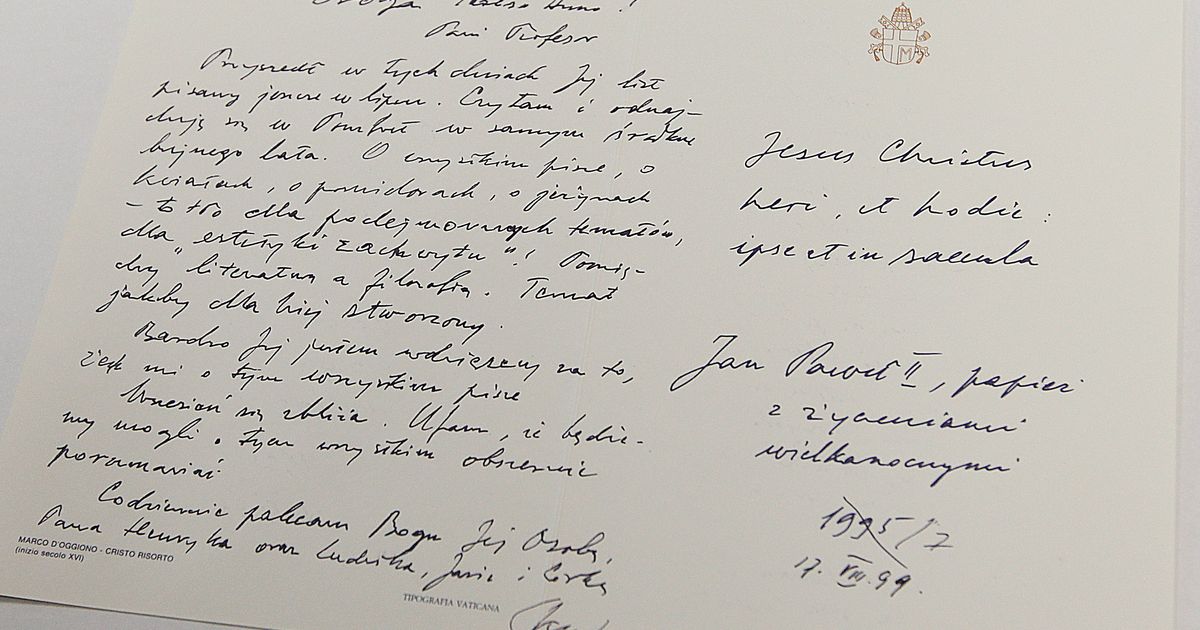 Pani Profesor
Przyszedł w tych dniach Jej list
pisany jeszcze w lipcu. Czytam i odnaj-
duję się w w samym środku
bujnego lata. O wszystkim pisze, o
kwiatach, o pomidorach, o jeżynach
- to tło dla podejmowanych tematów,
dla "estetyki zachwytu"! Pomię-
dzy "literaturą a filozofią. Temat
jakby dla niej stworzony.
Bardzo Jej jestem wdzięczny za to,
że mi o tym wszystkim pisze
Wrzesień się zbliża. Ufam, że będzie-
my mogli o tym wszystkim obszernie
porozmawiać
Codziennie polecam Bogu Jej Osobę,
Pana Henryka oraz Ludwika, Jasia i Córkę
MARCO D'OGGIONO - CRISTO RISORTO
(inizio secolo XVI)
TIPOGRAFIA VATICANA
M
Jesus Christus
heri, et hodie:
ipse et in saecula
Jan Paweł II, papież
z życzeniami
wielkanocnymi
1995/7
17. VIII. 99.